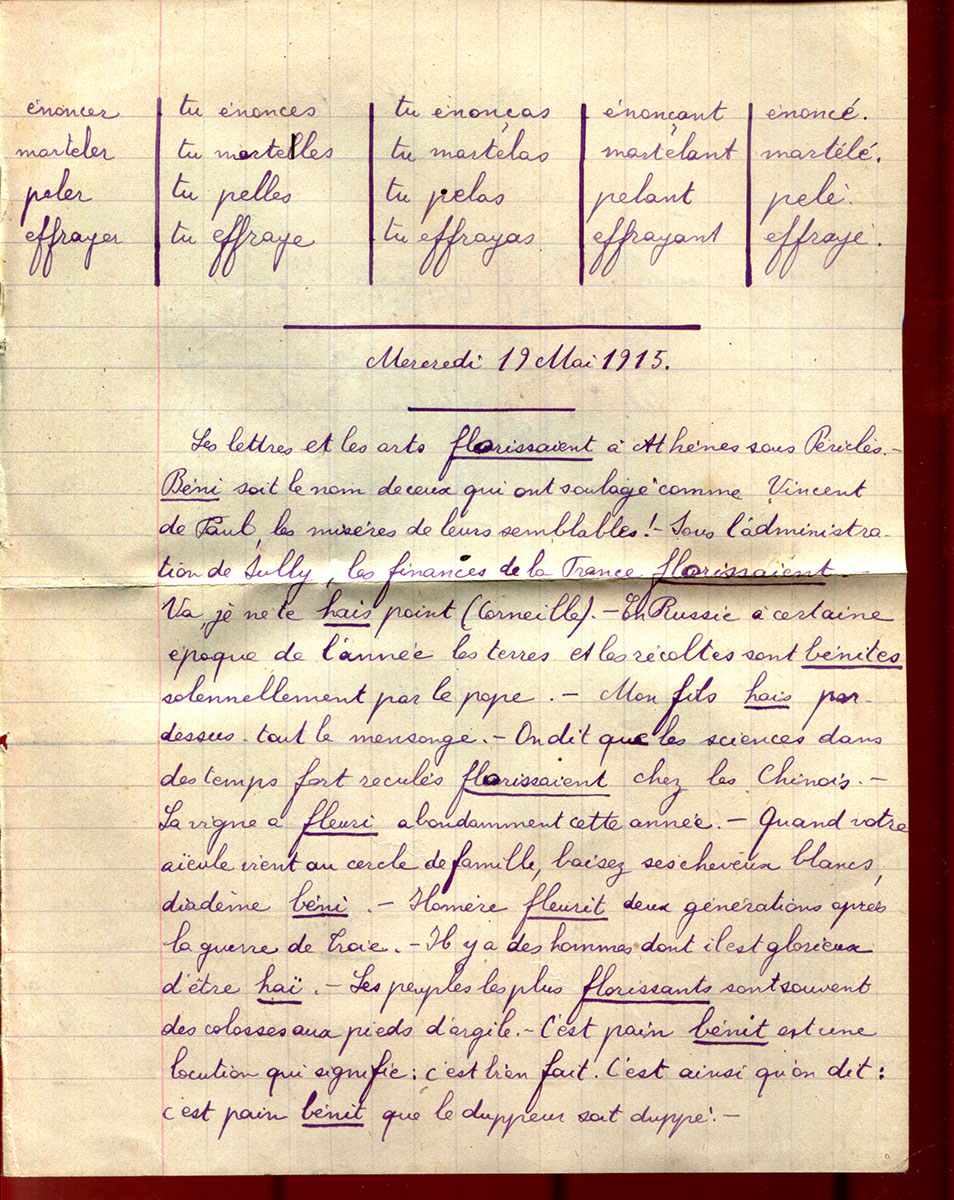 énoncer tu énonces tu énonças énonçant énoncé.
marteler tu martelles tu martelas martelant martélé.
peler tu pelles tu pelas pelant pelé.
effrayer tu effraye tu effrayas effrayant effrayé.
Mercredi 19 Mai 1915.
Les lettres et les arts florissaient à Athènes sous Périclès.-
Béni soit le nom de ceux qui ont soulagé comme Vincent
de Paul, les misères de leurs semblables! - Sous l'administra-
tion de Sully, les finances de la France florissaient -
Va, je ne te hais point (Corneille). - En Russie à certaine
époque de l'année les terres et les récoltes sont bénites
solennellement par le pope. - Mon fils hais par-
dessus-tout le mensonge. - On dit que les sciences dans
des temps fort reculés florissaient chez les Chinois. -
La vigne a fleuri abondamment cette année. - Quand votre
aïeule vient au cercle de famille, baisez ses cheveux blancs,
diadème béni. - Homère fleurit deux générations après
la guerre de Troie. - Il y a des hommes dont il est glorieux
d'être haï. - Les peuples les plus florissants sont souvent
des colosses aux pieds d'argile. - C'est pain bénit est une
locution qui signifie : c'est bien fait. C'est ainsi qu'on dit :
c'est pain bénit que le duppeur soit duppé. -